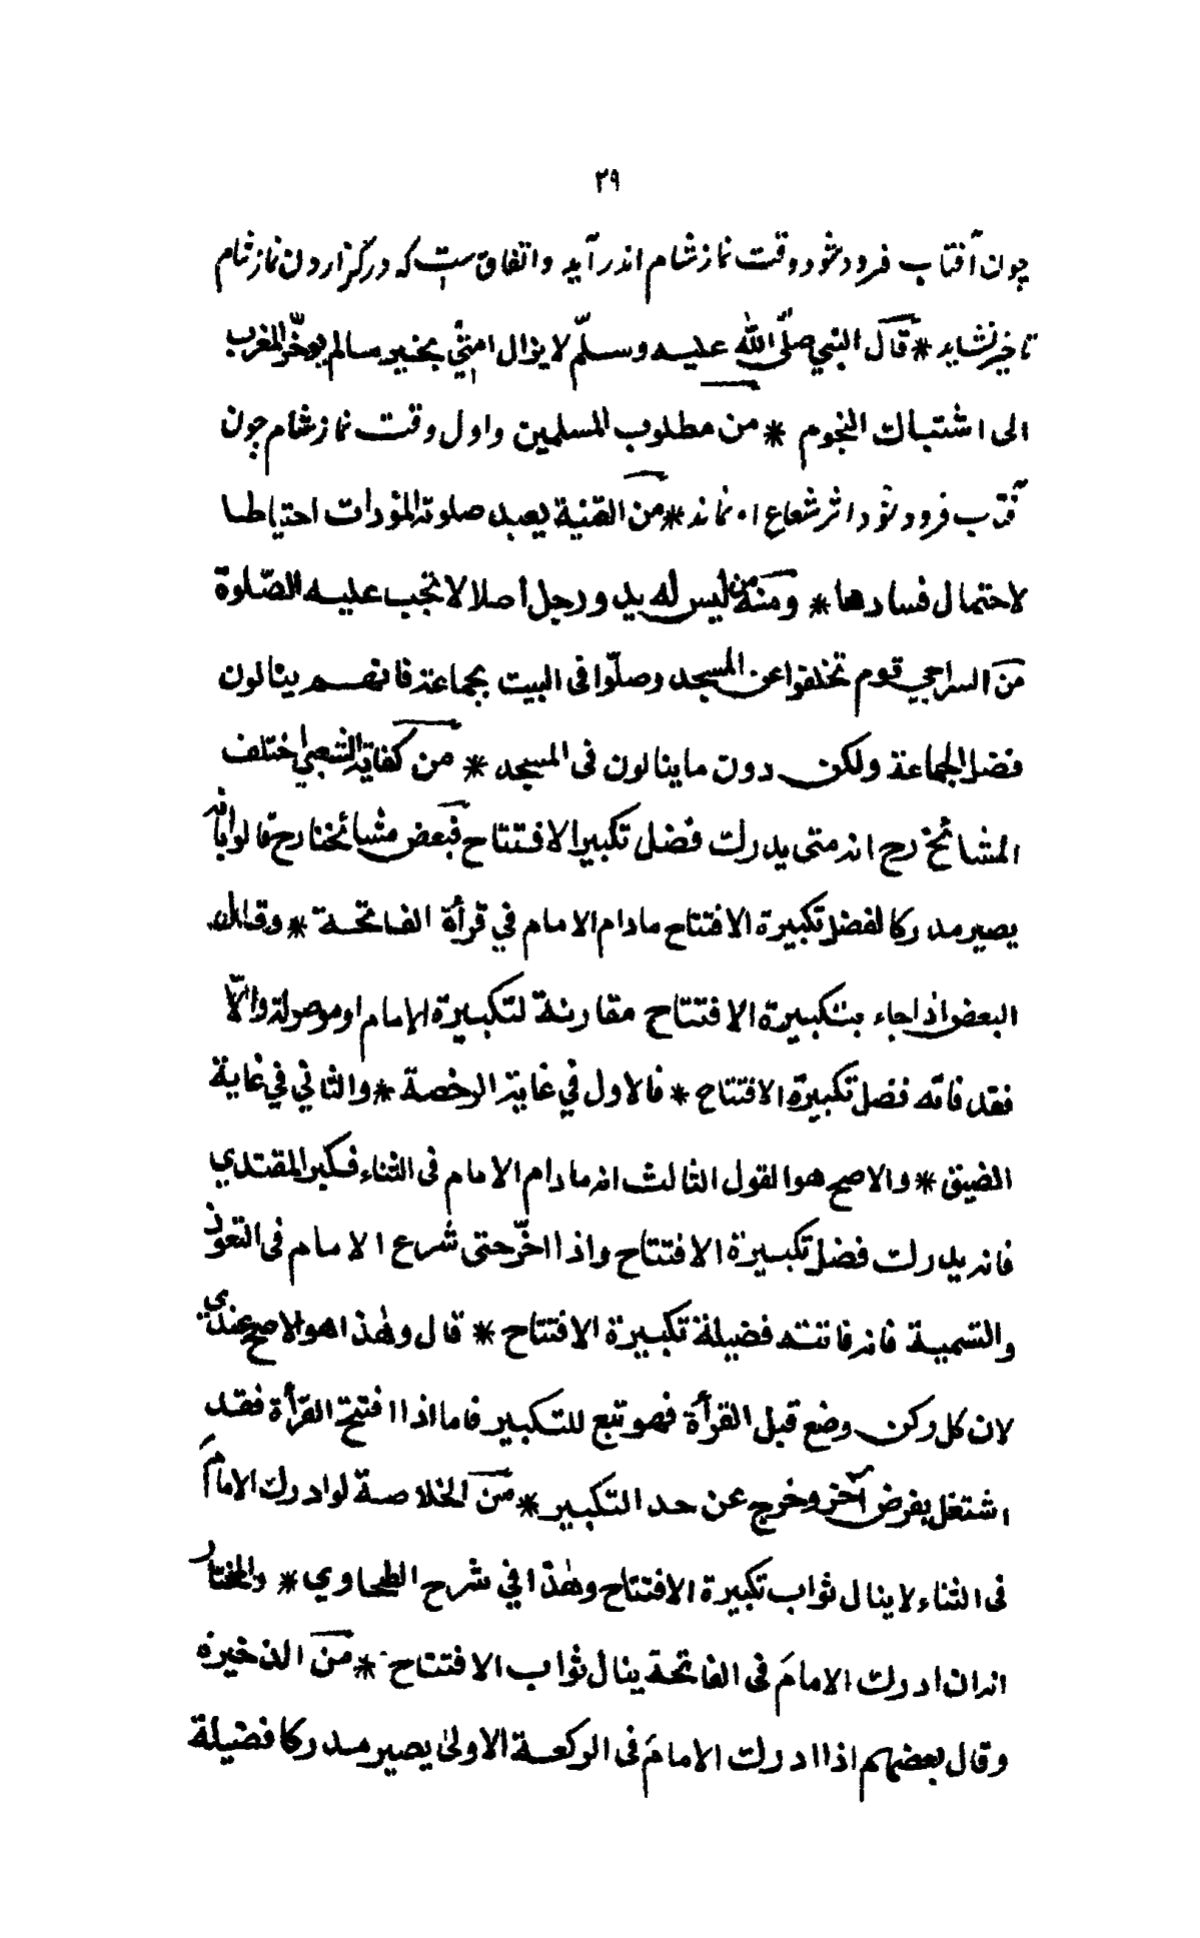 ٢٩
چون آفتاب فرود شود وقت نماز شام اندر آید واتفاق ست که در گزاردن نماز شام
تاخیر نشاید * قال النبي صلّی الله علیه وسلّم لایزال امتي بخیر سالم یوخّر المغرب
الی اشتباك النجوم * من مطلوب المسلمین واول وقت نماز شام چون
آفتاب فرود شود اثر شعاع او نماند * من القنیة یعید صلوته المؤدات احتیاطا
لاحتمال فسادها * ومنه من لیس له ید ورجل أصلا لاتجب علیه الصّلوة
من السراجي قوم تخلفوا عن المسجد وصلّوا فی البیت بجماعة فانهم ینالون
فضل الجماعة ولکن دون ماینالون فی المسجد * من کفایة الشعبي اختلف
المشائخ رح انه متی یدرك فضل تکبیر الافتتاح فبعض مشائخنا رح قالوا بانه
یصیر مدرکا لفضل تکبیرة الافتتاح مادام الامام في قرأة الفاتحة * وقال
البعض اذا جاء بتکبیرة الافتتاح مقارنة لتکبیرة الامام او موصولة والّا
فقد فاته فضل تکبیرة الافتتاح * فالاول في غایة الرخصة * والثاني في غایة
المضیق * والاصح هو القول الثالث انه مادام الامام فی الثناء فکبر المقتدي
فانه یدرك فضل تکبیرة الافتتاح واذا اخّر حتی شرع الامام فی التعوذ
والتسمیة فانه فاتته فضیلة تکبیرة الافتتاح * قال وهٰذا هو الاصح عندي
لان کل رکن وضع قبل القرأة فهو تبع للتکبیر فاما اذا افتتح القرأة فقد
اشتغل بفرض آخر وخرج عن حد التکبیر * من الخلاصة لو ادرك الامامَ
فی الثناء لاینال ثواب تکبیرة الافتتاح وهٰذا في شرح الطحاوي * والمختار
انه ان ادرك الامامَ فی الفاتحة ینال ثواب الافتتاح * من الذخیرة
وقال بعضهم اذا ادرك الامامَ فی الرکعة الاولیٰ یصیر مدرکا فضیلة